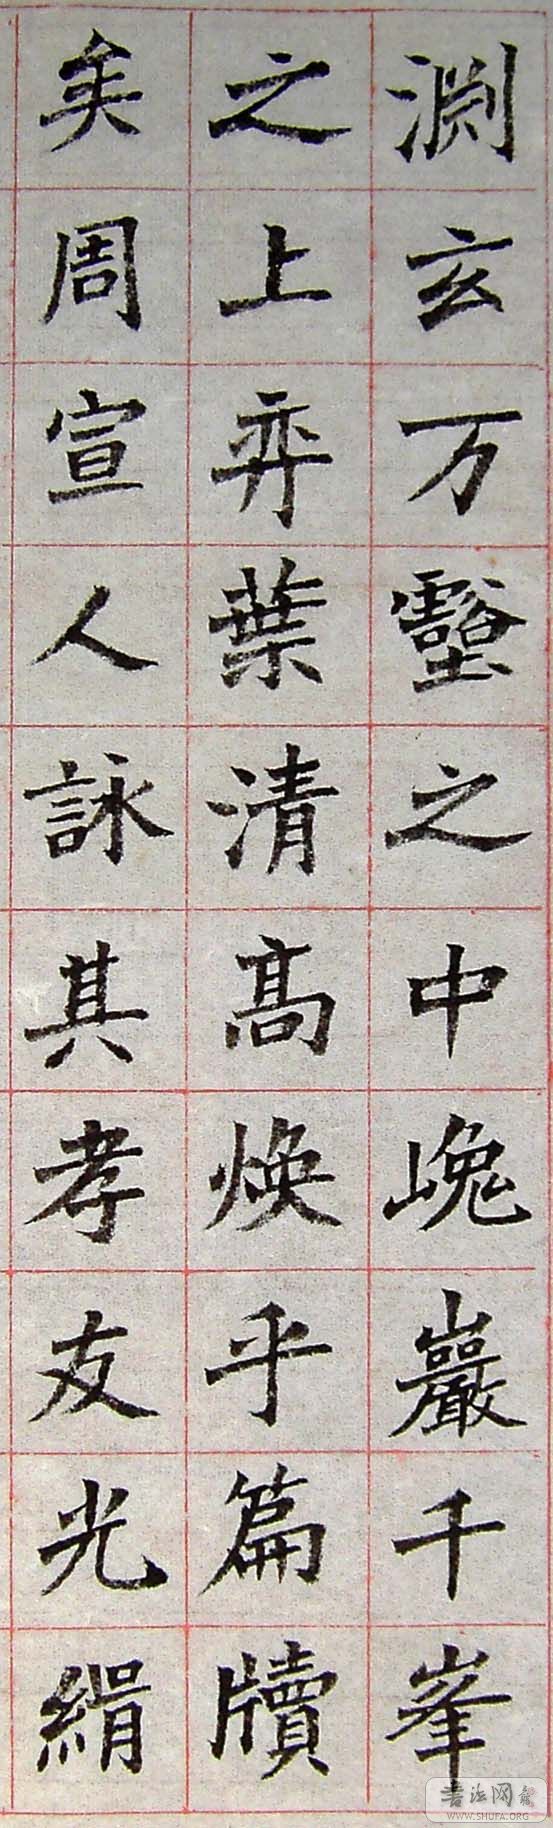 渕玄万壑之中巉巖千峯
之上弈葉清高煥乎篇牘
矣周宣人詠其孝友光緝
书法网
WWW.SHUFA.ORG